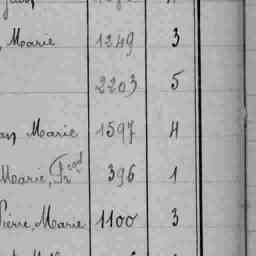 , Marie 1249 3
2203 5
an Marie 1597 4
Marie, 396 1
Pierre, Marie 1100 3